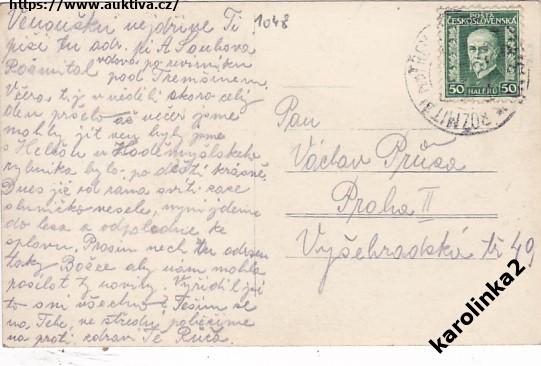 https://www.auktiva.cz/
1048
Venoušku nejdříve Ti
píši tu adr. pí A. Soukova
vdova po
Rožmitál pod Třemšínem.
Včera t.j. v neděli skoro celý
den pršelo až večer jsme
mohly jít ven byly jsme
s Helčou u
rybníka bylo po dešti krásně.
Dnes již od rána svítí zase
sluníčko vesele, nyní jdeme
do lesa a odpoledne ke
splavu. Prosím nech tu adresu
taky Božce aby nám mohla
posílat ty noviny. Vyřiď jí
to ode všechno. Těším se
na Tebe, ve středu
na proti zdraví Tě Růža.
POŠTA
ČESKOSLOVENSKÁ
50 HALÉŘŮ 50
ROŽMITÁL
Pan
Václav Průša
Praha II
Vyšehradská tř 49
karolinka2